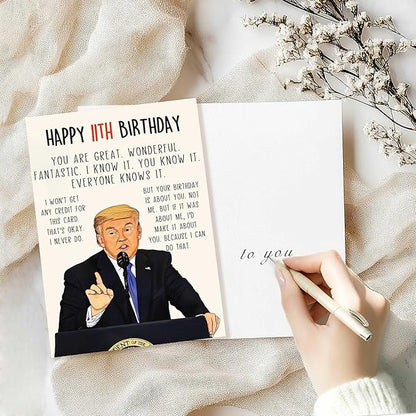 HAPPY 11TH BIRTHDAY
YOU ARE GREAT. WONDERFUL.
FANTASTIC. I KNOW IT. YOU KNOW IT.
EVERYONE KNOWS IT.
I WON'T GET
ANY CREDIT FOR
THIS CARD.
THAT'S OKAY.
I NEVER DO.
BUT YOUR BIRTHDAY
IS ABOUT YOU. NOT
ME. BUT IF IT WAS
ABOUT ME, I'D
MAKE IT ABOUT
YOU. BECAUSE I CAN
DO THAT.
to you
ENT OF THE